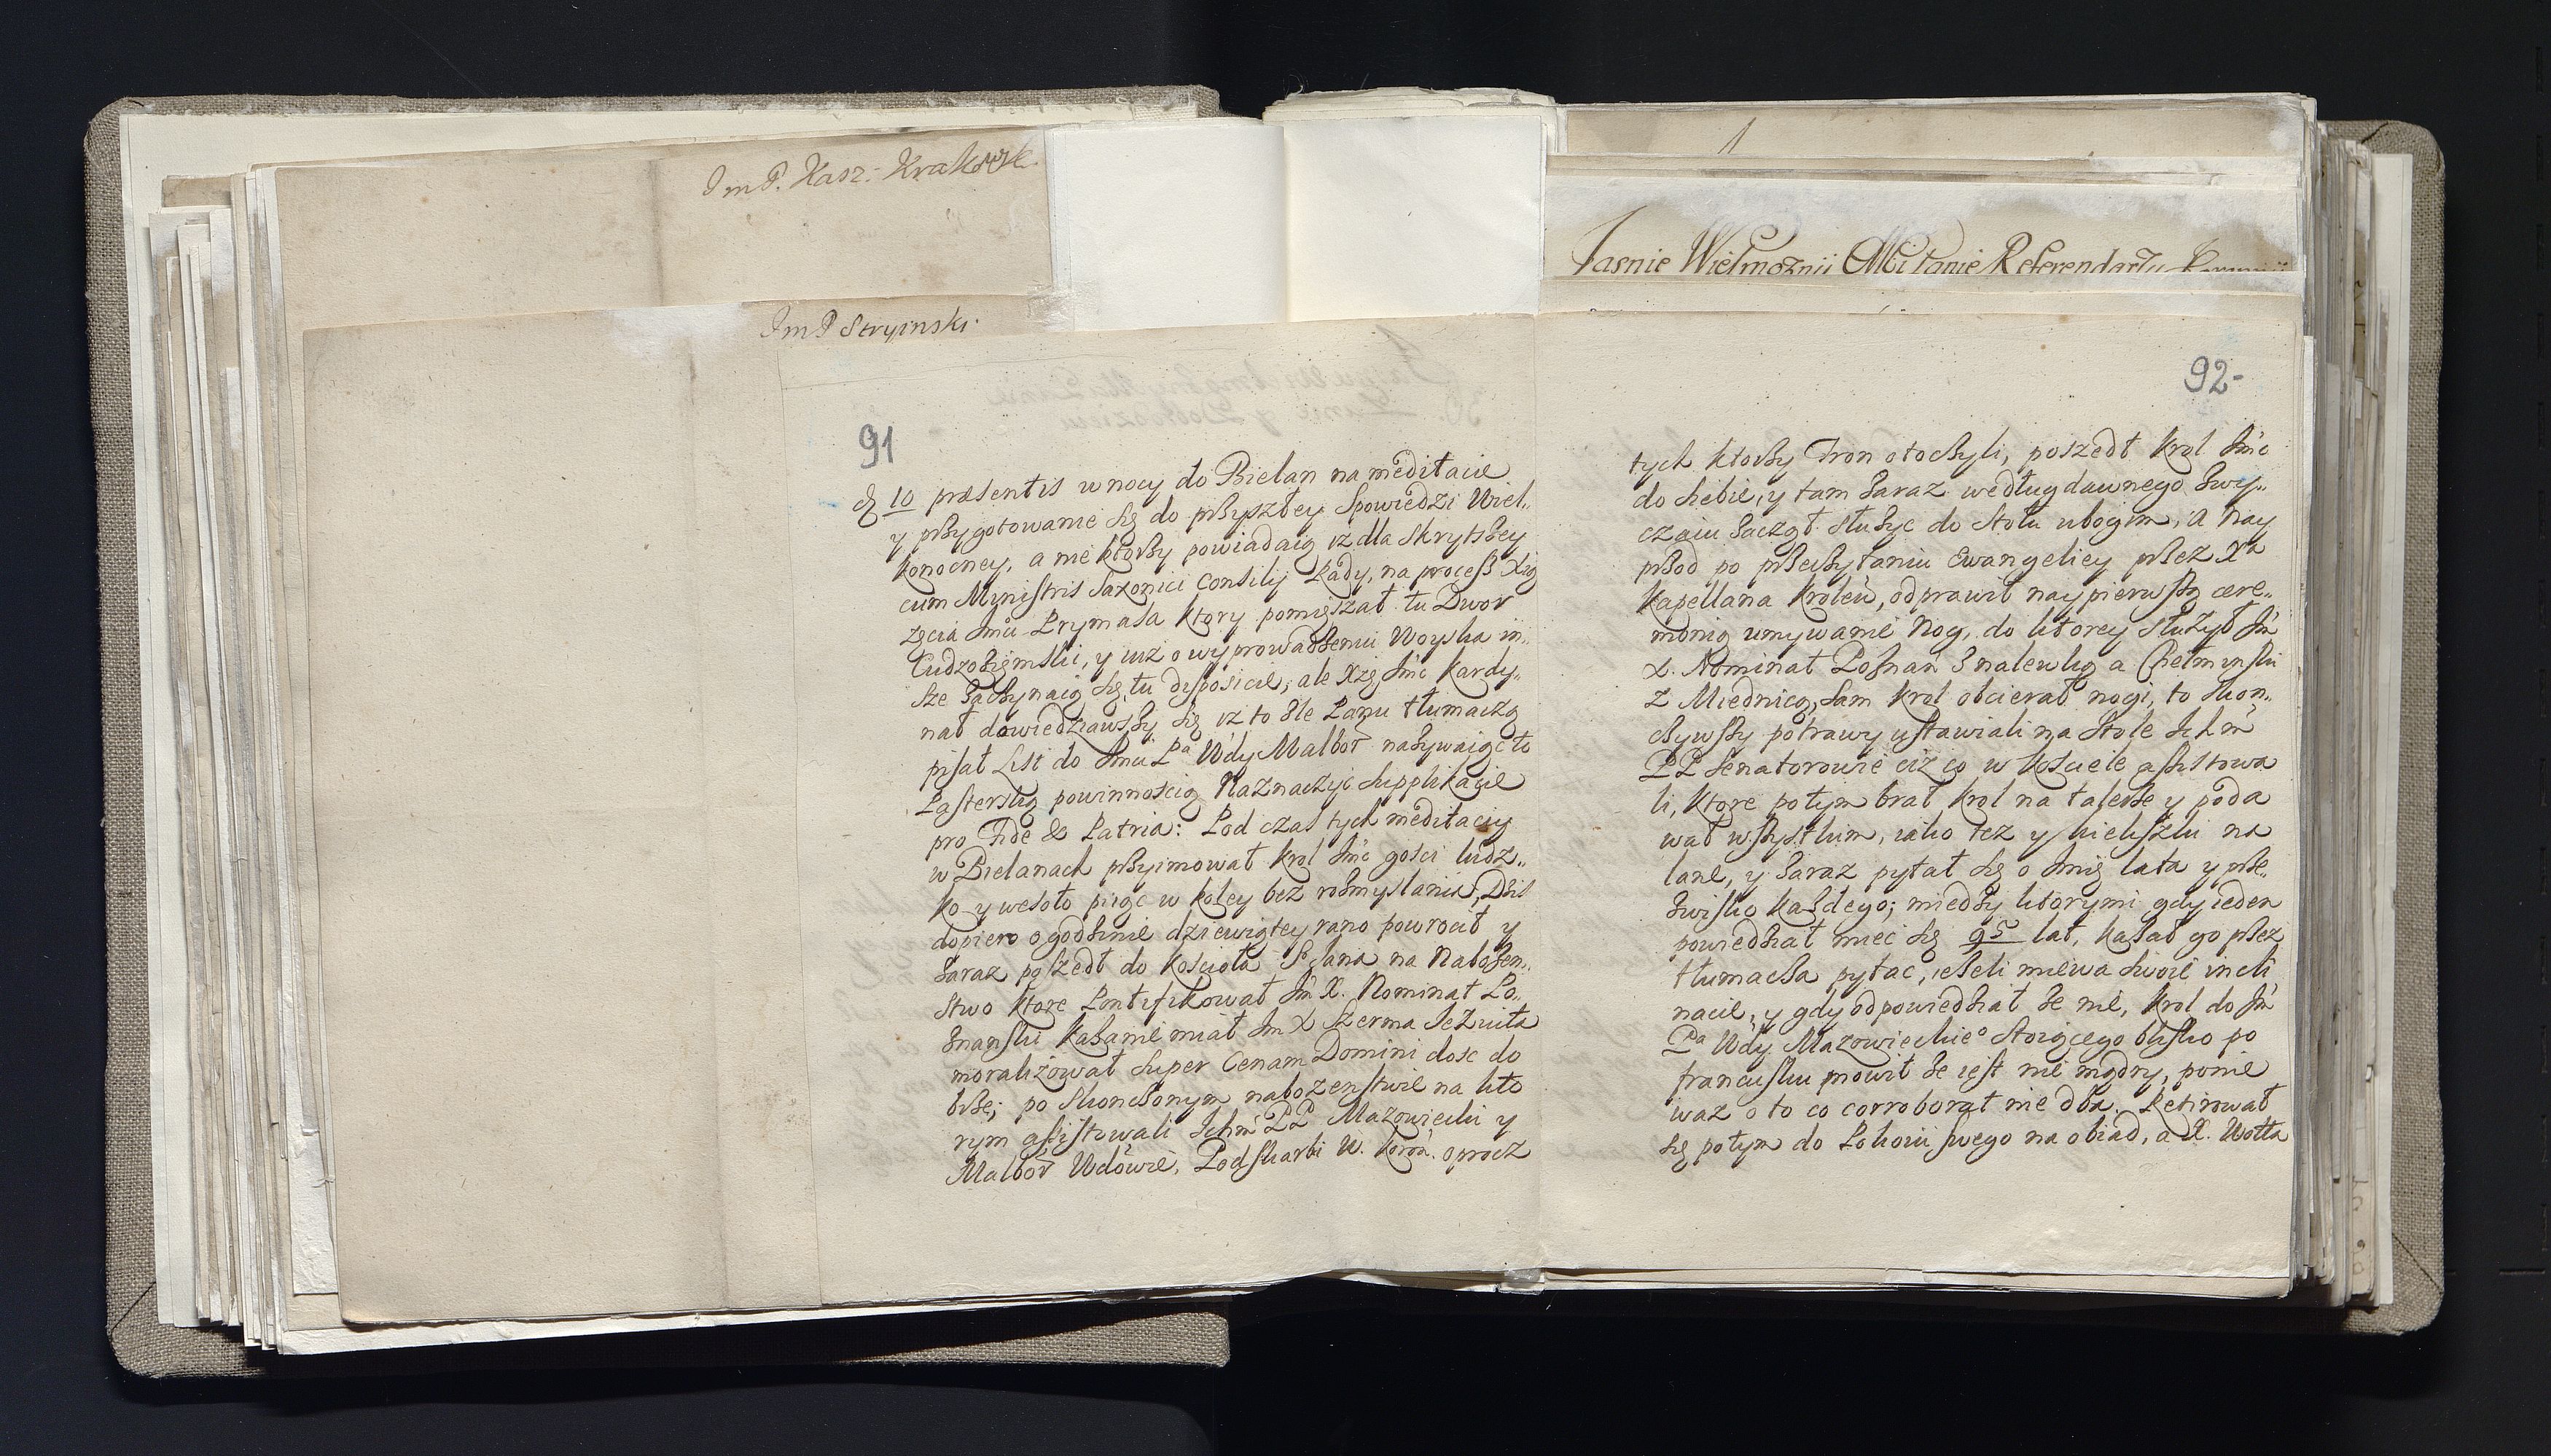 Im P. Kasz: Krakowsk.
Im P Stryinski.
1
Jasnie Wielmoznii Mci Panie Referendarzu
91
d 10 præsentis w nocy do Bielan na meditacie
y przygotowanie się do przyszłey Spowiedzi Wiel„
konocney, a niektorzy powiadaią iz dla skrytszey
cum Mynistris Saxonici Consilij Rady, na process Xią
zęcia Jmci Prymasa ktory pomięszał tu Dwor
Cudzoziemski, y iuz o wyprowadzeniu Woyska in„
sze zaczynaią się tu disposicie; ale Xzę Jmc Kardy„
nał dowiedziawszy się iz to zle Panu tłumaczą
pisał List do Jmci Pa Wdy Malbor nazywaiąc to
Pasterską powinnoscią Naznaczyc Supplikacie
pro Fide & Patria: Pod czas tych meditaciy
w Bielanach przyimował Krol Jmc gosci ludz„
ko y wesoło piiąc w koley bez rozmyslania, Dzis
dopiero o godzinie dziewiątey rano powrocił y
zaraz poszedł do Koscioła So Jana na Nabozen„
stwo ktore Pontifikował Jm X. Nominat Po„
znanski Kazanie miał Jm X Szerma Jezuita
moralizował super Cenam Domini dosc do
brze; po skonczonym nabozenstwie na kto
rym assistowali Ichm PP Mazowiecki y
Malbor Wdowie, Podskarbi W. Koron. oprocz
92-
tych ktorzy Tron otoczyli, poszedł Krol Jmc
do siebie, y tam zaraz według dawnego zwy„
czaiu zaczął słuzyc do Stołu ubogim, a nay
przod po przeczytaniu Ewangeliey przez Xa
Kapellana Krolew, odprawił naypierwszą cere„
monią umywanie Nog, do ktorey słuzył Jm
X. Nominat Poznan z nalewką a Chełminski
z Miednicą, sam Krol obcierał nogi, to skon„
czywszy potrawy ustawiali na Stole Ichm
PP Senatorowie ciz co w kosciele assistowa
li, ktore potym brał Krol na talerze y poda
wał wszystkim, iako tez y kieliszki na
lane, y zaraz pytał się o Imię lata y prze„
zwisko kazdego; miedzy ktorymi gdy ieden
powiedział miec się 95 lat, kazał go przez
tłumacza pytac, iezeli miewa swoie incli
nacie, y gdy odpowiedział ze nie, Krol do Jm
Pa Wdy Mazowieckieo stoiącego blisko po
francusku mowił ze iest nie mądry, ponie
waz o to co corroborat nie dba. Retirował
się potym do Pokoiu swego na obiad, a X. Wotta